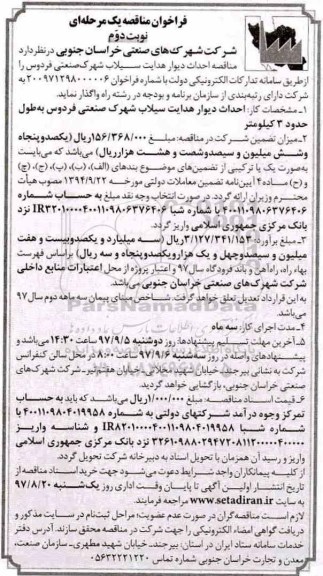 فراخوان مناقصه یک مرحله‌ای
نوبت دوم
شرکت شهرک‌های صنعتی خراسان جنوبی در نظر دارد
مناقصه احداث دیوار هدایت سیلاب شهرک صنعتی فردوس را
از طریق سامانه تدارکات الکترونیکی دولت با شماره فراخوان ۲۰۰۹۷۱۲۹۸۰۰۰۰۰۶ به
شرکت دارای رتبه‌بندی از سازمان برنامه و بودجه در رشته راه واگذار نماید.
۱-مشخصات کار: احداث دیوار هدایت سیلاب شهرک صنعتی فردوس به‌طول
حدود ۳ کیلومتر
۲-میزان تضمین شرکت در مناقصه: مبلغ ۱۵۶/۳۶۸/۰۰۰ریال (یکصدوپنجاه
وشش میلیون و سیصدوشصت و هشت هزارریال) می‌باشد که می‌بایست
به‌صورت یک یا ترکیبی از تضمین‌های موضوع بندهای (الف)، (ب)، (پ)، (ج)، (چ)
و (ح) ماده۴ آیین‌نامه تضمین معاملات دولتی مورخه ۱۳۹۴/۹/۲۲ مصوب هیأت
محترم وزیران ارائه گردد. در صورت انتخاب وجه نقد مبلغ به حساب شماره
۴۰۰۱۱۰۹۸۰۶۳۷۶۴۰۶ با شماره شبا IR۳۲۰۱۰۰۰۰۴۰۰۱۱۰۹۸۰۶۳۷۶۴۰۶ نزد
بانک مرکزی جمهوری اسلامی واریز گردد.
۳-مبلغ برآورد: ۳/۱۲۷/۳۴۱/۱۵۳ریال (سه میلیارد و یکصدوبیست و هفت
میلیون و سیصدوچهل و یک هزارویکصدوپنجاه و سه ریال) براساس فهرست
بهاء راه، راه‌آهن و باند فرودگاه سال ۹۷ و اعتبار پروژه از محل اعتبارات منابع داخلی
شرکت شهرک‌های صنعتی خراسان جنوبی می‌باشد.
به این قرارداد تعدیل تعلق خواهد گرفت. شاخص مبنای پیمان سه ماهه دوم سال ۹۷
می‌باشد.
۴-مدت اجرای کار: سه ماه
۵-آخرین مهلت تسلیم پیشنهادها: روز دوشنبه ۹۷/۹/۵ ساعت ۱۴:۳۰ می‌باشد و
پیشنهادهای واصله در روز سه‌شنبه ۹۷/۹/۶ ساعت ۰۸:۰۰ در محل سالن کنفرانس
شرکت به نشانی بیرجند، خیابان شهید محلاتی، خیابان هفتم تیر- شرکت شهرک‌های
صنعتی خراسان جنوبی، بازگشایی خواهد گردید.
۶-قیمت اسناد مناقصه: مبلغ ۱/۰۰۰/۰۰۰ریال می‌باشد که باید به حساب
تمرکز وجوه درآمد شرکتهای دولتی به شماره ۴۰۰۱۱۰۹۸۰۴۰۱۹۹۵۸ با
شماره شبا IR۸۲۰۱۰۰۰۰۴۰۰۱۱۰۹۸۰۴۰۱۹۹۵۸ و شناسه واریز
نزد بانک مرکزی جمهوری اسلامی
واریز و رسید آن همزمان با تحویل اسناد به دبیرخانه شرکت تحویل گردد.
از کلیه پیمانکاران واجد شرایط دعوت می‌شود جهت خرید اسناد مناقصه از
تاریخ انتشار اولین آگهی تا پایان وقت اداری روز یک‌شنبه ۹۷/۸/۲۰
به سایت www.setadiran.ir مراجعه فرمایند.
لازم است مناقصه‌گران در صورت عدم عضویت؛ مراحل ثبت‌نام در سایت مذکور و
دریافت گواهی امضاء الکترونیکی را جهت شرکت در مناقصه محقق سازند. آدرس دفتر
خدمات سامانه ستاد ایران در استان: بیرجند، خیابان شهید مطهری- سازمان صنعت،
معدن و تجارت خراسان جنوبی شماره تماس: ۰۵۶۳۲۲۲۱۲۲۰